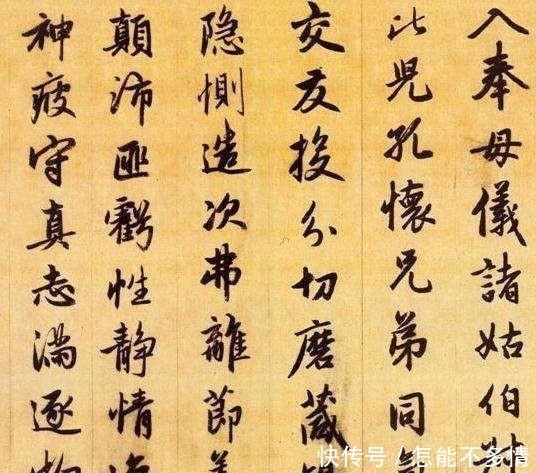 入奉母儀諸姑伯
比兒孔懷兄弟同
交友投分切磨箴
隐惻造次弗離節
顛沛匪虧性静情
神疲守真志滿逐
快传号 / 怎能不多情